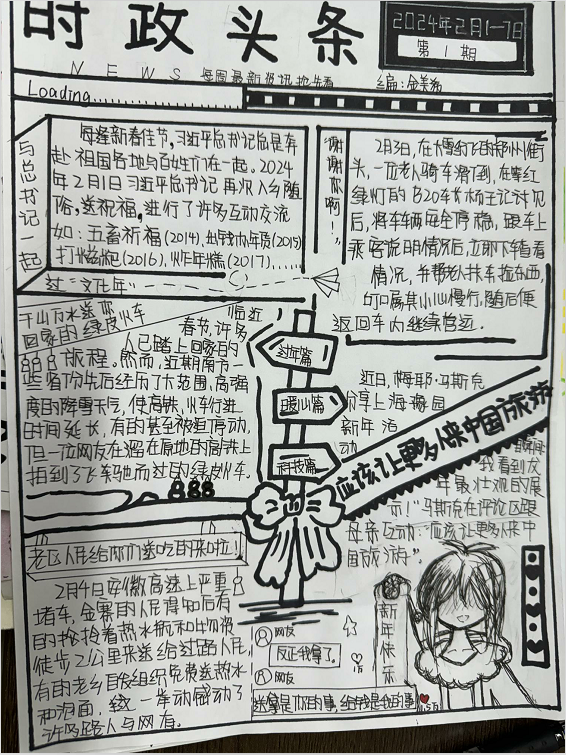 时政头条
2024年2月1-7日
第1期
NEWS 每周最新资讯抢先看 编:金美希
Loading
与总书记一起
每逢新春佳节,习近平总书记总是奔
赴祖国各地与百姓们在一起。2024
年2月1日习近平总书记再次入乡随
俗,送祝福,进行了许多互动交流
如:五畜祈福(2014),出钱办年货(2015)
打糍粑(2016),炸年糕(2017)......
过“文化年”
谢谢你啊!”
2月3日,在大雪纷飞的郑州街
头,一位老人骑车滑倒,在等红
绿灯的B20车长杨王记讨见
后,将车辆安全停稳,跟车上
乘客说明情况后,立即下车查看
情况,并帮老人扶车拉东西,
叮嘱其小心慢行,随后便
返回车内继续营运.
千山万水送您
回家的绿皮火车
临近
春节,许多
人已踏上回家的
旅程。然而,近期南方一
些省份先后经历了大范围,高强
度的降雪天气,使高铁,火车行进
时间延长,有的甚至被迫停动,
但一位网友在溜在原地的高铁上
拍到了飞车驰而过的绿皮火车.
过年篇
暖心篇
科技篇
近日,梅耶·马斯克
分享上海豫园
新年活
动
应该让更多人来中国旅游
我看到龙
年最壮观的展
示!”马斯克在评论区跟
母亲互动:“应该让更多人来中
国旅游”.
老区人民给你们送吃的来啦!
2月4日安徽高速上严重
堵车,金寨的人民得知后有
的抢抢着热水瓶和物资
徒步2公里来送给过路人民,
有的老乡自发组织免费送热水
和泡面,这一举动感动了
许多路人与网友.
网友
反正我拿了.
网友
送拿是你的事,给钱是我的事
新年快乐